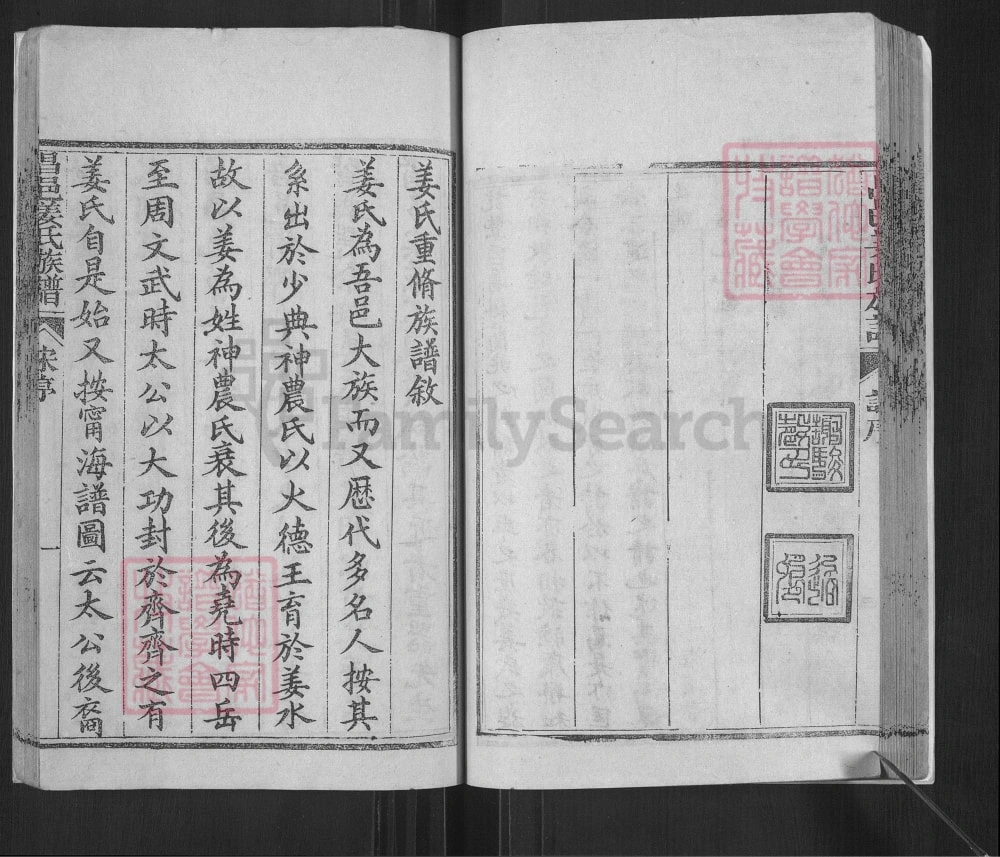 昌邑姜氏族譜
譜序
姜氏重脩族譜敘
姜氏為吾邑大族而又歷代多名人按其
系出於少典神農氏以火德王育於姜水
故以姜為姓神農氏衰其後為堯時四岳
至周文武時太公以大功封於齊齊之有
姜氏自是始又按甯海譜圖云太公後裔
昌邑姜氏族譜
宋序
一
FamilySearch